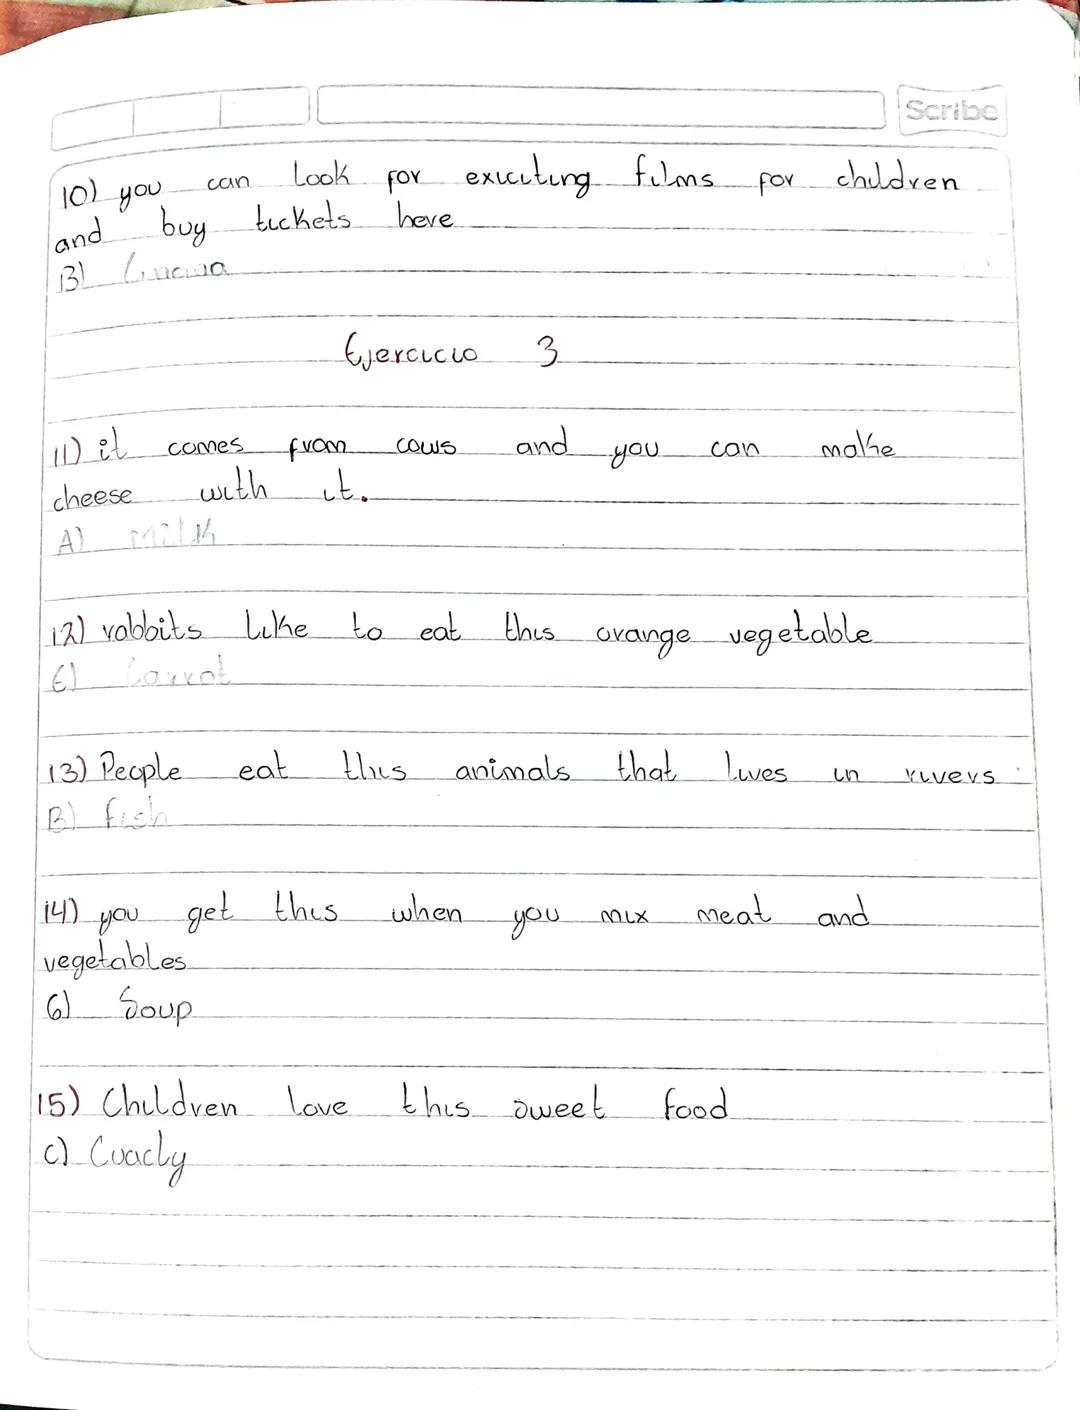 Scribe
10) you can look for exiciting films for children
and buy tickets here
B) Cinema
Ejercicio 3
11) it comes from cows and you can make
cheese with it.
A) Milk
12) rabbits like to eat this orange vegetable
E) Carrot
13) People eat this animals that lives in rivers
B) fish
14) you get this when you mix meat and
vegetables
G) Soup
15) Children love this sweet food
C)